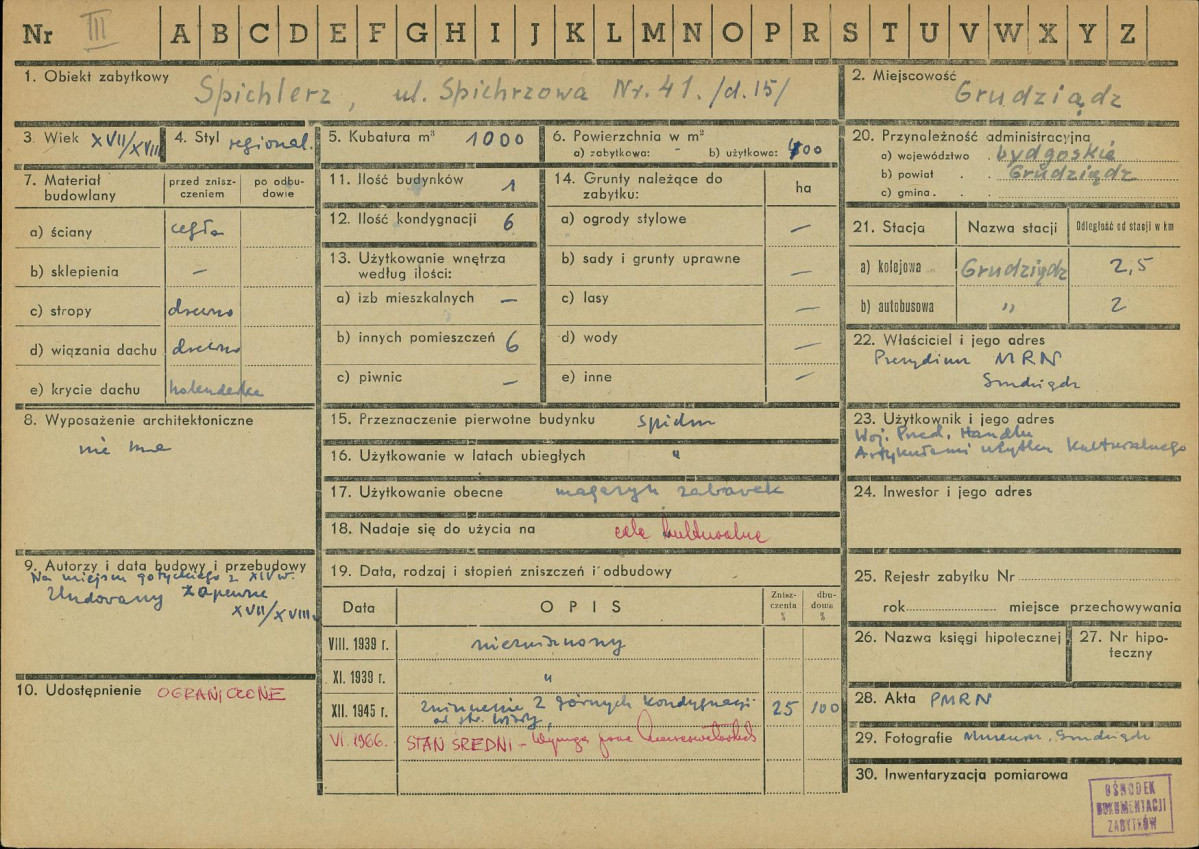 Nr III A B C D E F G H I J K L M N O P R S T U V W X Y Z
1. Obiekt zabytkowy
Spichlerz, ul. Spichrzowa Nr. 41. /d. 15/
2. Miejscowość
Grudziądz
3. Wiek XVII/XVIII
4. Styl regional.
5. Kubatura m³ 1000
6. Powierzchnia w m²
a) zabytkowa: - b) użytkowa: 400
7. Materiał budowlany
przed znisz-
czeniem
po odbu-
dowie
a) ściany cegła
b) sklepienia —
c) stropy drewno
d) wiązania dachu drewno
e) krycie dachu holenderka
8. Wyposażenie architektoniczne
nie ma
9. Autorzy i data budowy i przebudowy
Na miejscu gotyckiego z XIV w.
Zbudowany zapewne
XVII/XVIII w.
10. Udostępnienie OGRANICZONE
11. Ilość budynków 1
12. Ilość kondygnacji 6
13. Użytkowanie wnętrza
według ilości:
a) izb mieszkalnych —
b) innych pomieszczeń 6
c) piwnic —
14. Grunty należące do
zabytku:
ha
a) ogrody stylowe —
b) sady i grunty uprawne —
c) lasy —
d) wody —
e) inne —
15. Przeznaczenie pierwotne budynku
16. Użytkowanie w latach ubiegłych "
17. Użytkowanie obecne magazyn zabawek
18. Nadaje się do użycia na cele kulturalne
19. Data, rodzaj i stopień zniszczeń i odbudowy
Data OPIS
Znisz-
czenia
%
dbu-
dowa
%
VIII. 1939 r. niezniszczony
XI. 1939 r. "
XII. 1945 r. zniszczenie 2 górnych kondygnacji 25 100
od str. Wisły,
VI. 1966. STAN ŚREDNI – Wymaga prac konserwatorskich
20. Przynależność administracyjna
a) województwo . bydgoskie
b) powiat . . Grudziądz
c) gmina . .
21. Stacja Nazwa stacji Odległość od stacji w km
a) kolejowa Grudziądz 2,5
b) autobusowa " 2
22. Właściciel i jego adres
Prezydium MRN
Grudziądz
23. Użytkownik i jego adres
Woj. Przed. Handlu
Artykułami użytku kulturalnego
24. Inwestor i jego adres
25. Rejestr zabytku Nr
rok miejsce przechowywania
26. Nazwa księgi hipotecznej
27. Nr hipo-
teczny
28. Akta PMRN
29. Fotografie Muzeum, Grudziądz
30. Inwentaryzacja pomiarowa
OŚRODEK
DOKUMENTACJI
ZABYTKÓW